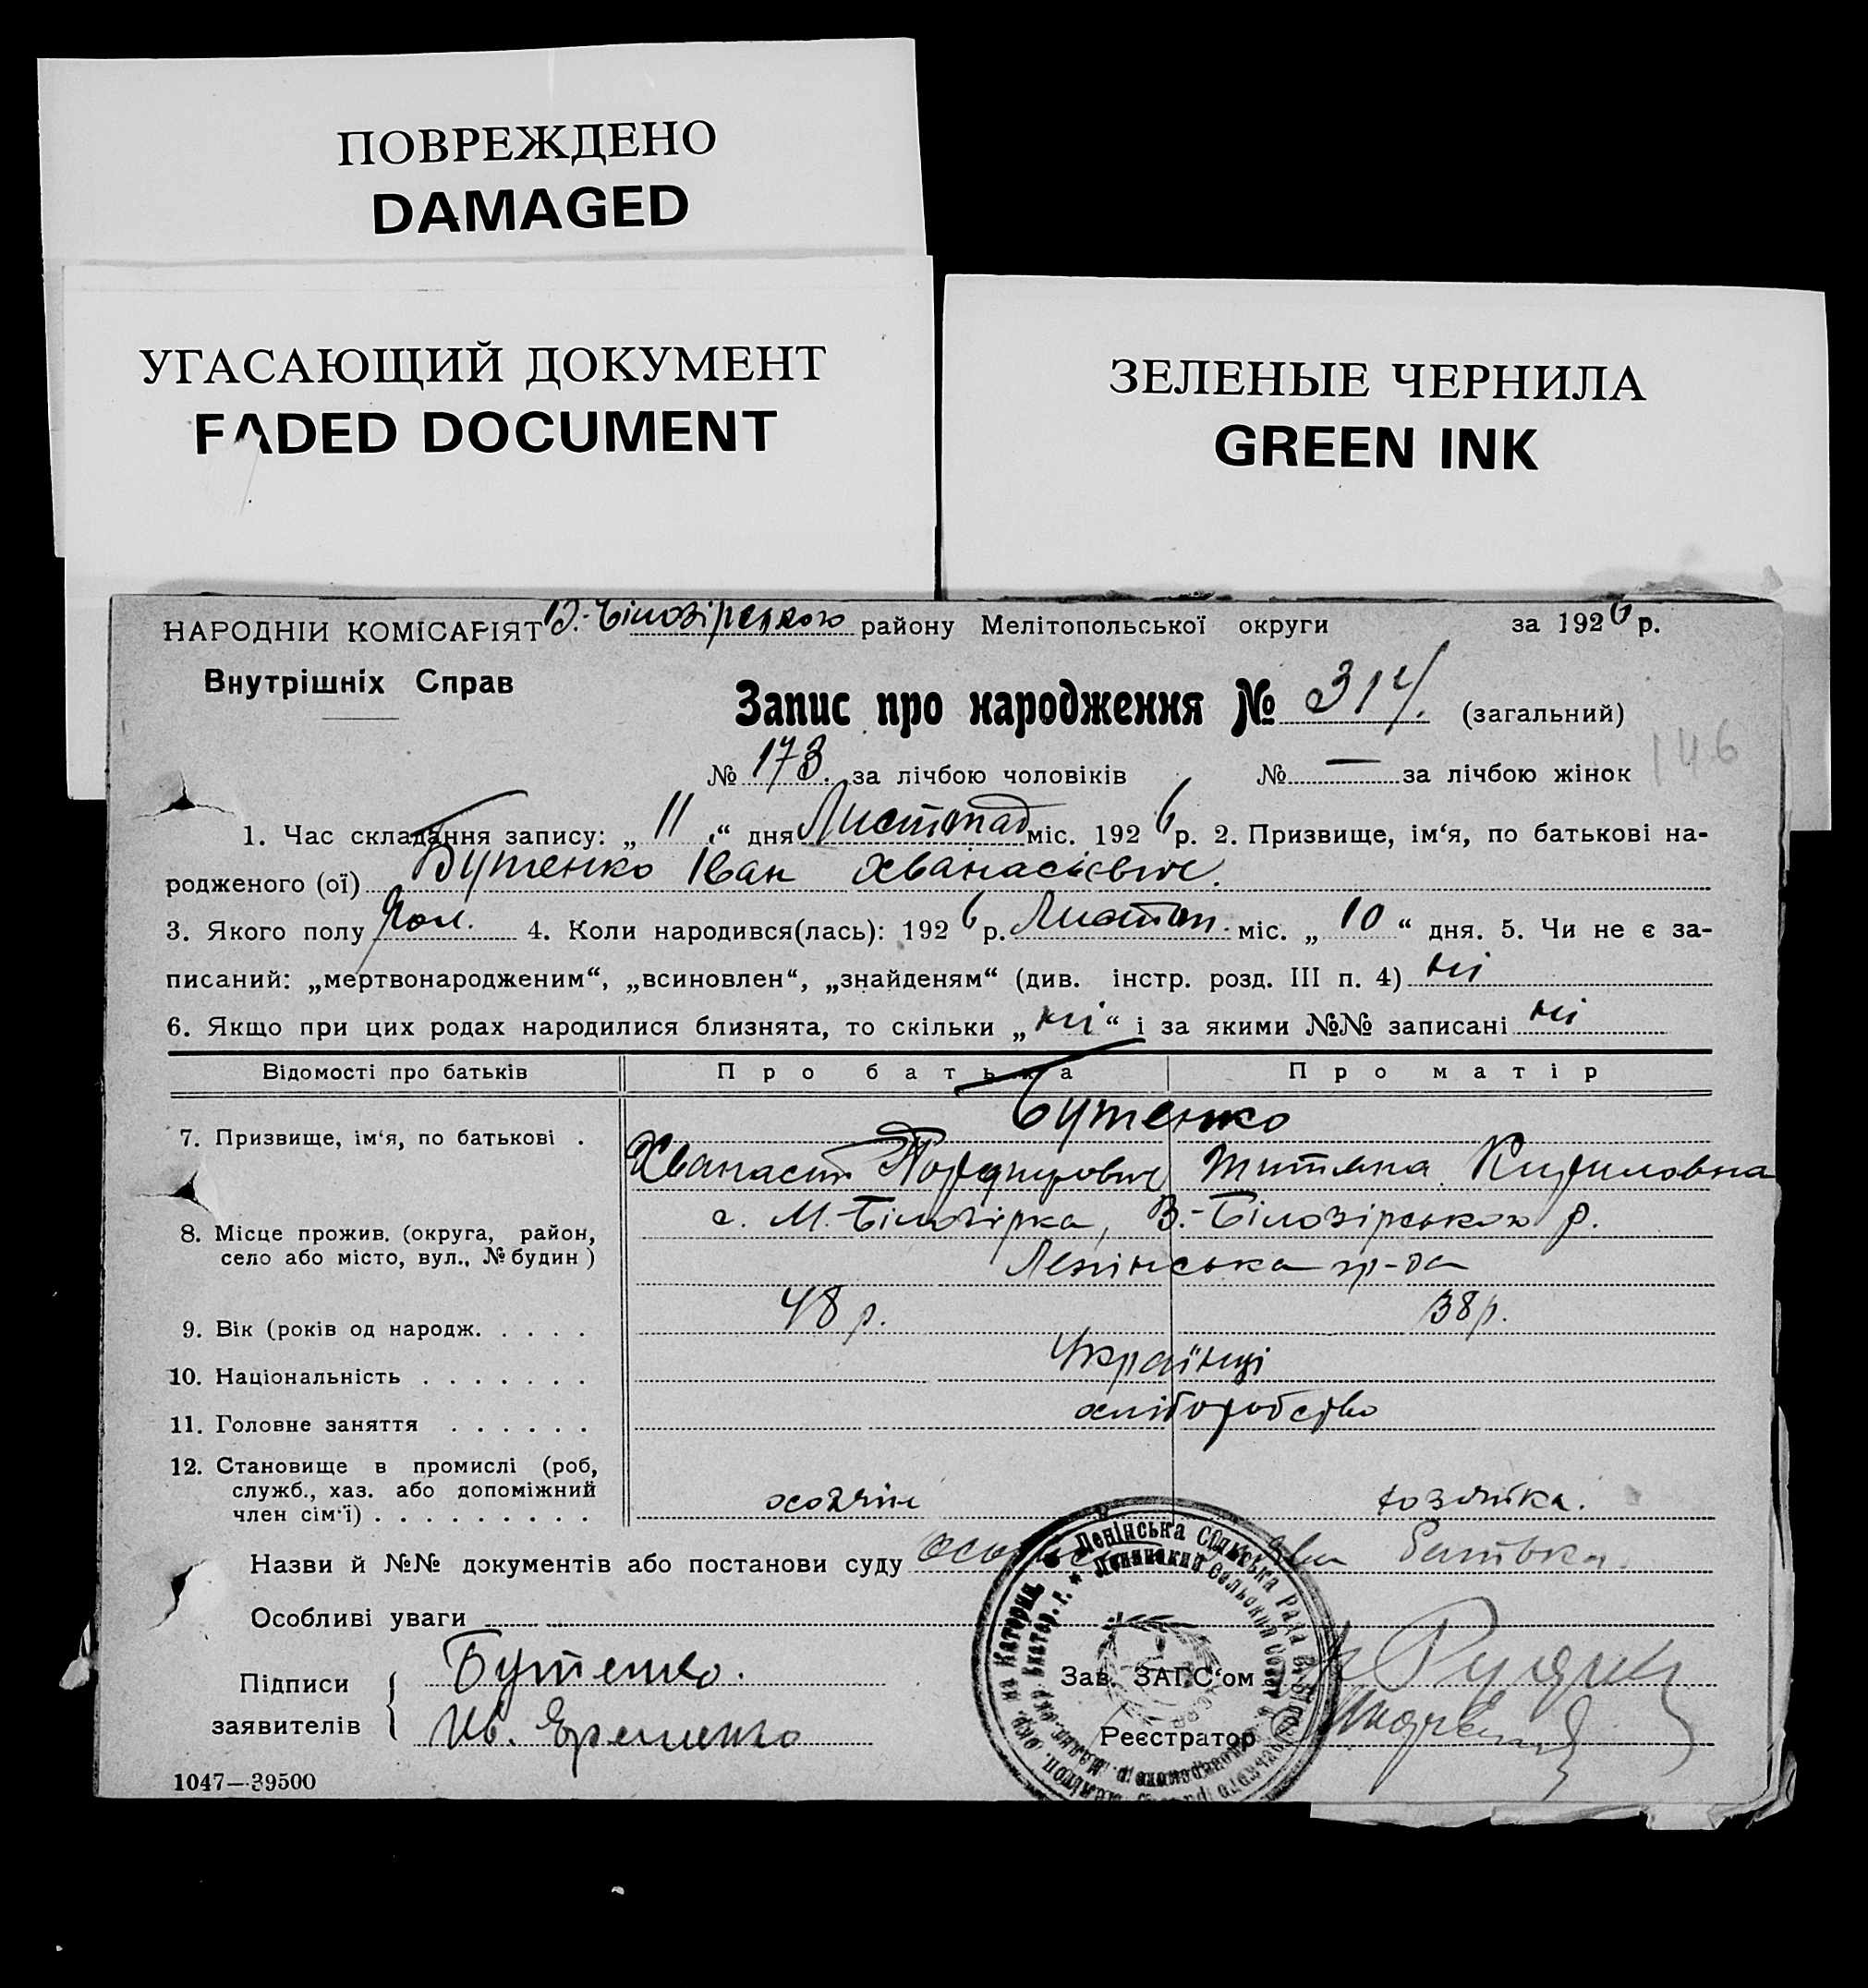 ПОВРЕЖДЕНО
DAMAGED
УГАСАЮЩИЙ ДОКУМЕНТ
FADED DOCUMENT
ЗЕЛЕНЫЕ ЧЕРНИЛА
GREEN INK
НАРОДНІЙ КОМІСАРІЯТ В.-Білозірського району Мелітопольської округи за 1926 р.
Внутрішніх Справ
Запис про народження № 314. (загальний)
146
№ 173. за лічбою чоловіків № — за лічбою жінок
1. Час складання запису: „ 11 “ дня Листопад міс. 1926 р. 2. Призвище, ім‘я, по батькові на-
родженого (ої) Бутенко Іван Хванасієвич.
3. Якого полу чол. 4. Коли народився(лась): 1926 р. Листоп. міс. „ 10 “ дня. 5. Чи не є за-
писаний: „мертвонародженим“, „всиновлен“, „знайденям“ (див. інстр. розд. III п. 4) ні
6. Якщо при цих родах народилися близнята, то скільки „ ні “ і за якими №№ записані ні
Відомості про батьків Про батька Про матір
Бутенко
7. Призвище, ім‘я, по батькові .
Хванасій Порфирович Титяна Кириловна
8. Місце прожив. (округа, район,
село або місто, вул., № будин )
с. М.-Білозірка, В.-Білозірського р.
Ленінська
9. Вік (років од народж. . . . . 48 р. 38 р.
10. Національність . . . . . . . Українці
11. Головне заняття . . . . . . хліборобство
12. Становище в промислі (роб,
служб., хаз. або допоміжний
член сім‘ї) . . . . . . . . . хозяїн хозяйка.
Назви й №№ документів або постанови суду
Особливі уваги
Підписи
заявителів
Бутенко.
Ив. Яременко
Зав. ЗАГС‘ом
Реєстратор
Ленінська Сільська Рада
Ленинский Сельский Совет
1047—39500